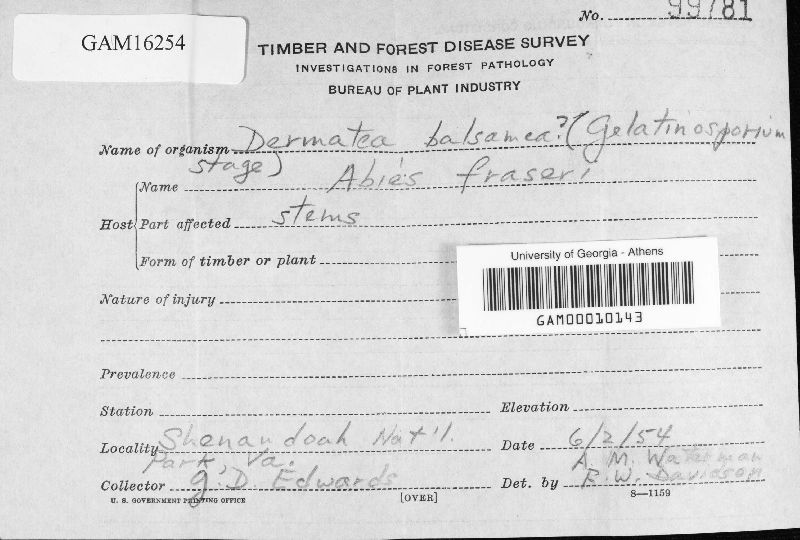 No. 99781
GAM16254
TIMBER AND FOREST DISEASE SURVEY
INVESTIGATIONS IN FOREST PATHOLOGY
BUREAU OF PLANT INDUSTRY
Name of organism Dermatea balsamea? (Gelatinosporium
stage)
Host Name Abies fraseri
Part affected stems
Form of timber or plant
University of Georgia - Athens
GAM00010143
Nature of injury
Prevalence
Station
Elevation
Locality Shenandoah Nat'l.
Park, Va.
Date 6/2/54
Collector J. D. Edwards
Det. by A. M. Waterman
R. W. Davidson
U. S. GOVERNMENT PRINTING OFFICE
[OVER]
8—1159